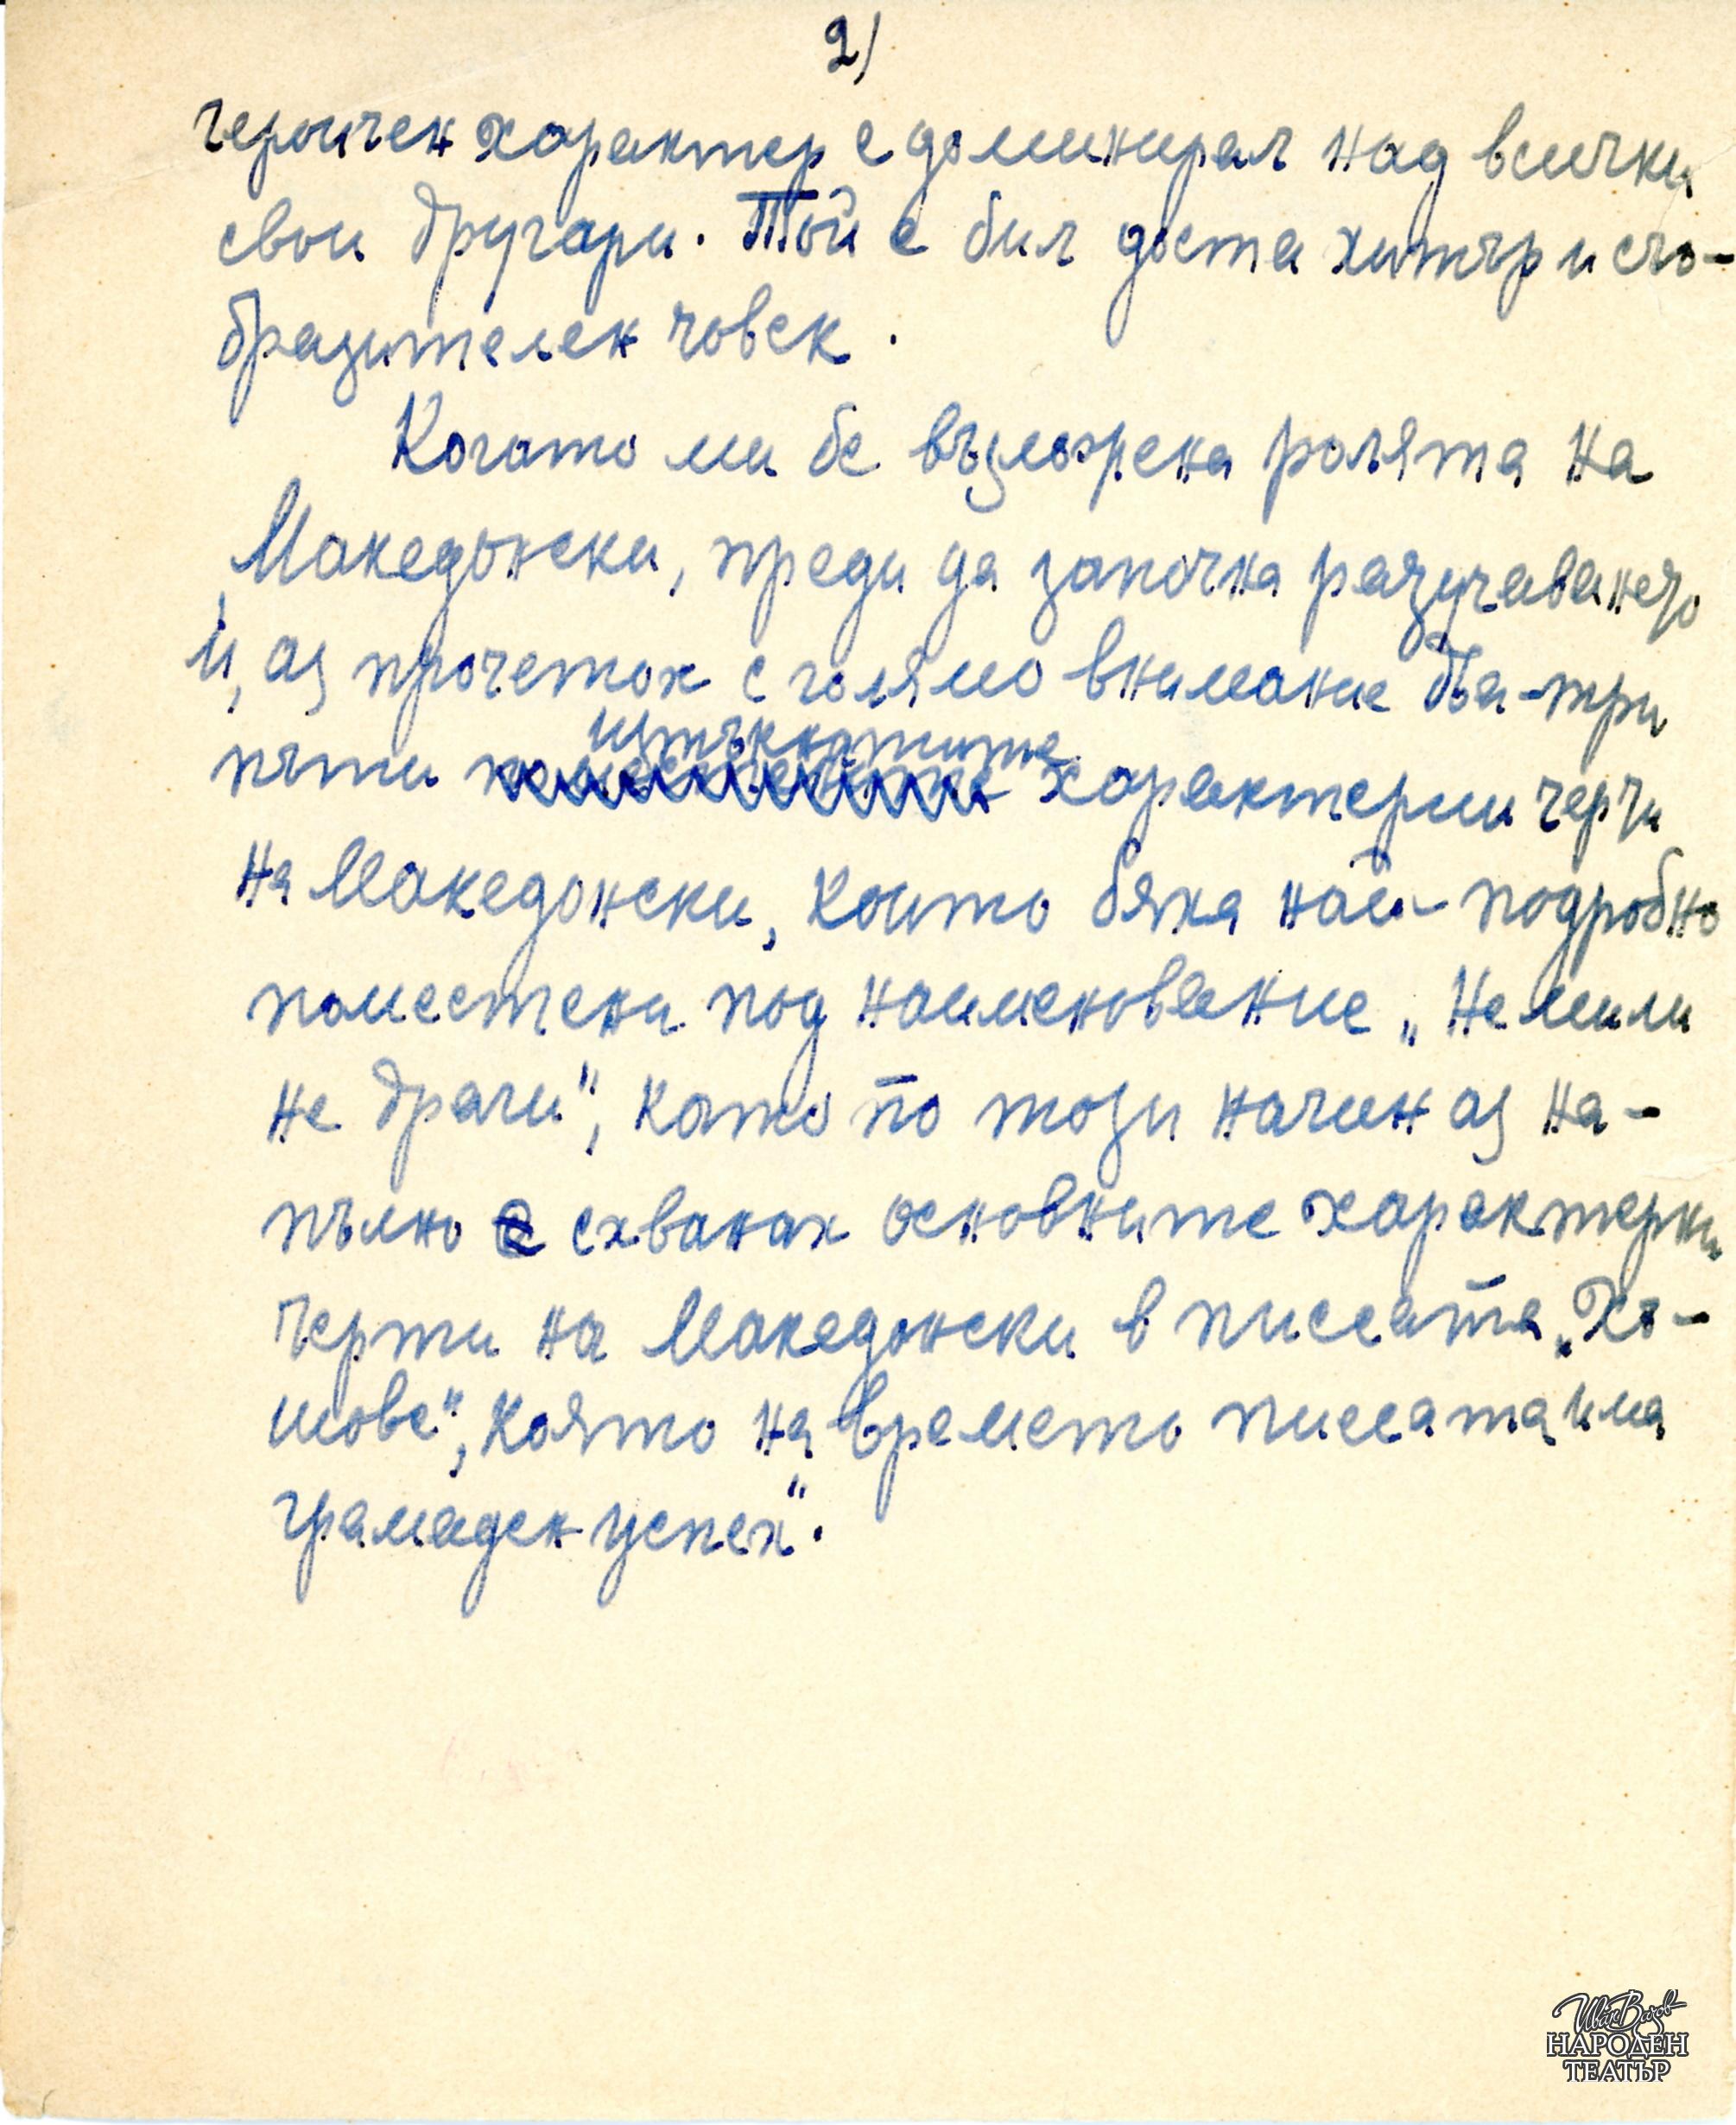 2/
героичен характер е доминирал над всички
свои другари. Той е бил доста хитър и съо-
бразителен човек.
Когато ми бе възложена ролята на
Македонски, преди да започна разучаването
и, аз прочетох с голямо внимание два-три
изтъкнатите
пъти характерни черти
на Македонски, които бяха най-подробно
поместени под наименование „Немили
не драги", като по този начин аз на-
пълно схванах основните характерни
черти на Македонски в писсата „Хъ-
шове", която на времето писсата има
грамаден успех".
Иван Вазов
НАРОДЕН
ТЕАТЪР